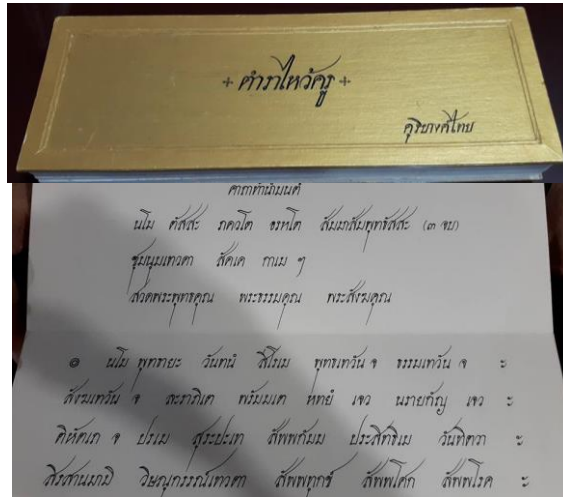 + ตำราไหว้ครู +
ดุริยางค์ไทย
คาถาทำน้ำมนต์
นโม ตัสสะ ภควโต อรหโต สัมมาสัมพุทธัสสะ (๓ จบ)
ชุมนุมเทวดา สัคเค กาเม ฯ
สวดพระพุทธคุณ พระธรรมคุณ พระสังฆคุณ
๏ นโม พุทธายะ วันทนํ สิโรเม พุทธเทวัน จ ธรรมเทวัน จ ะ
สังฆเทวัน จ พรัมมเต หทยํ เจว นรายกัญ เจว ะ
จ ปรเม สุระปะเท สัพพกัมม ประสิทธิเม วันทิตวา ะ
สิรสานมามิ วิษณุกรรม์เทวดา สัพพทุกข์ สัพพโศก สัพพโรค ะ